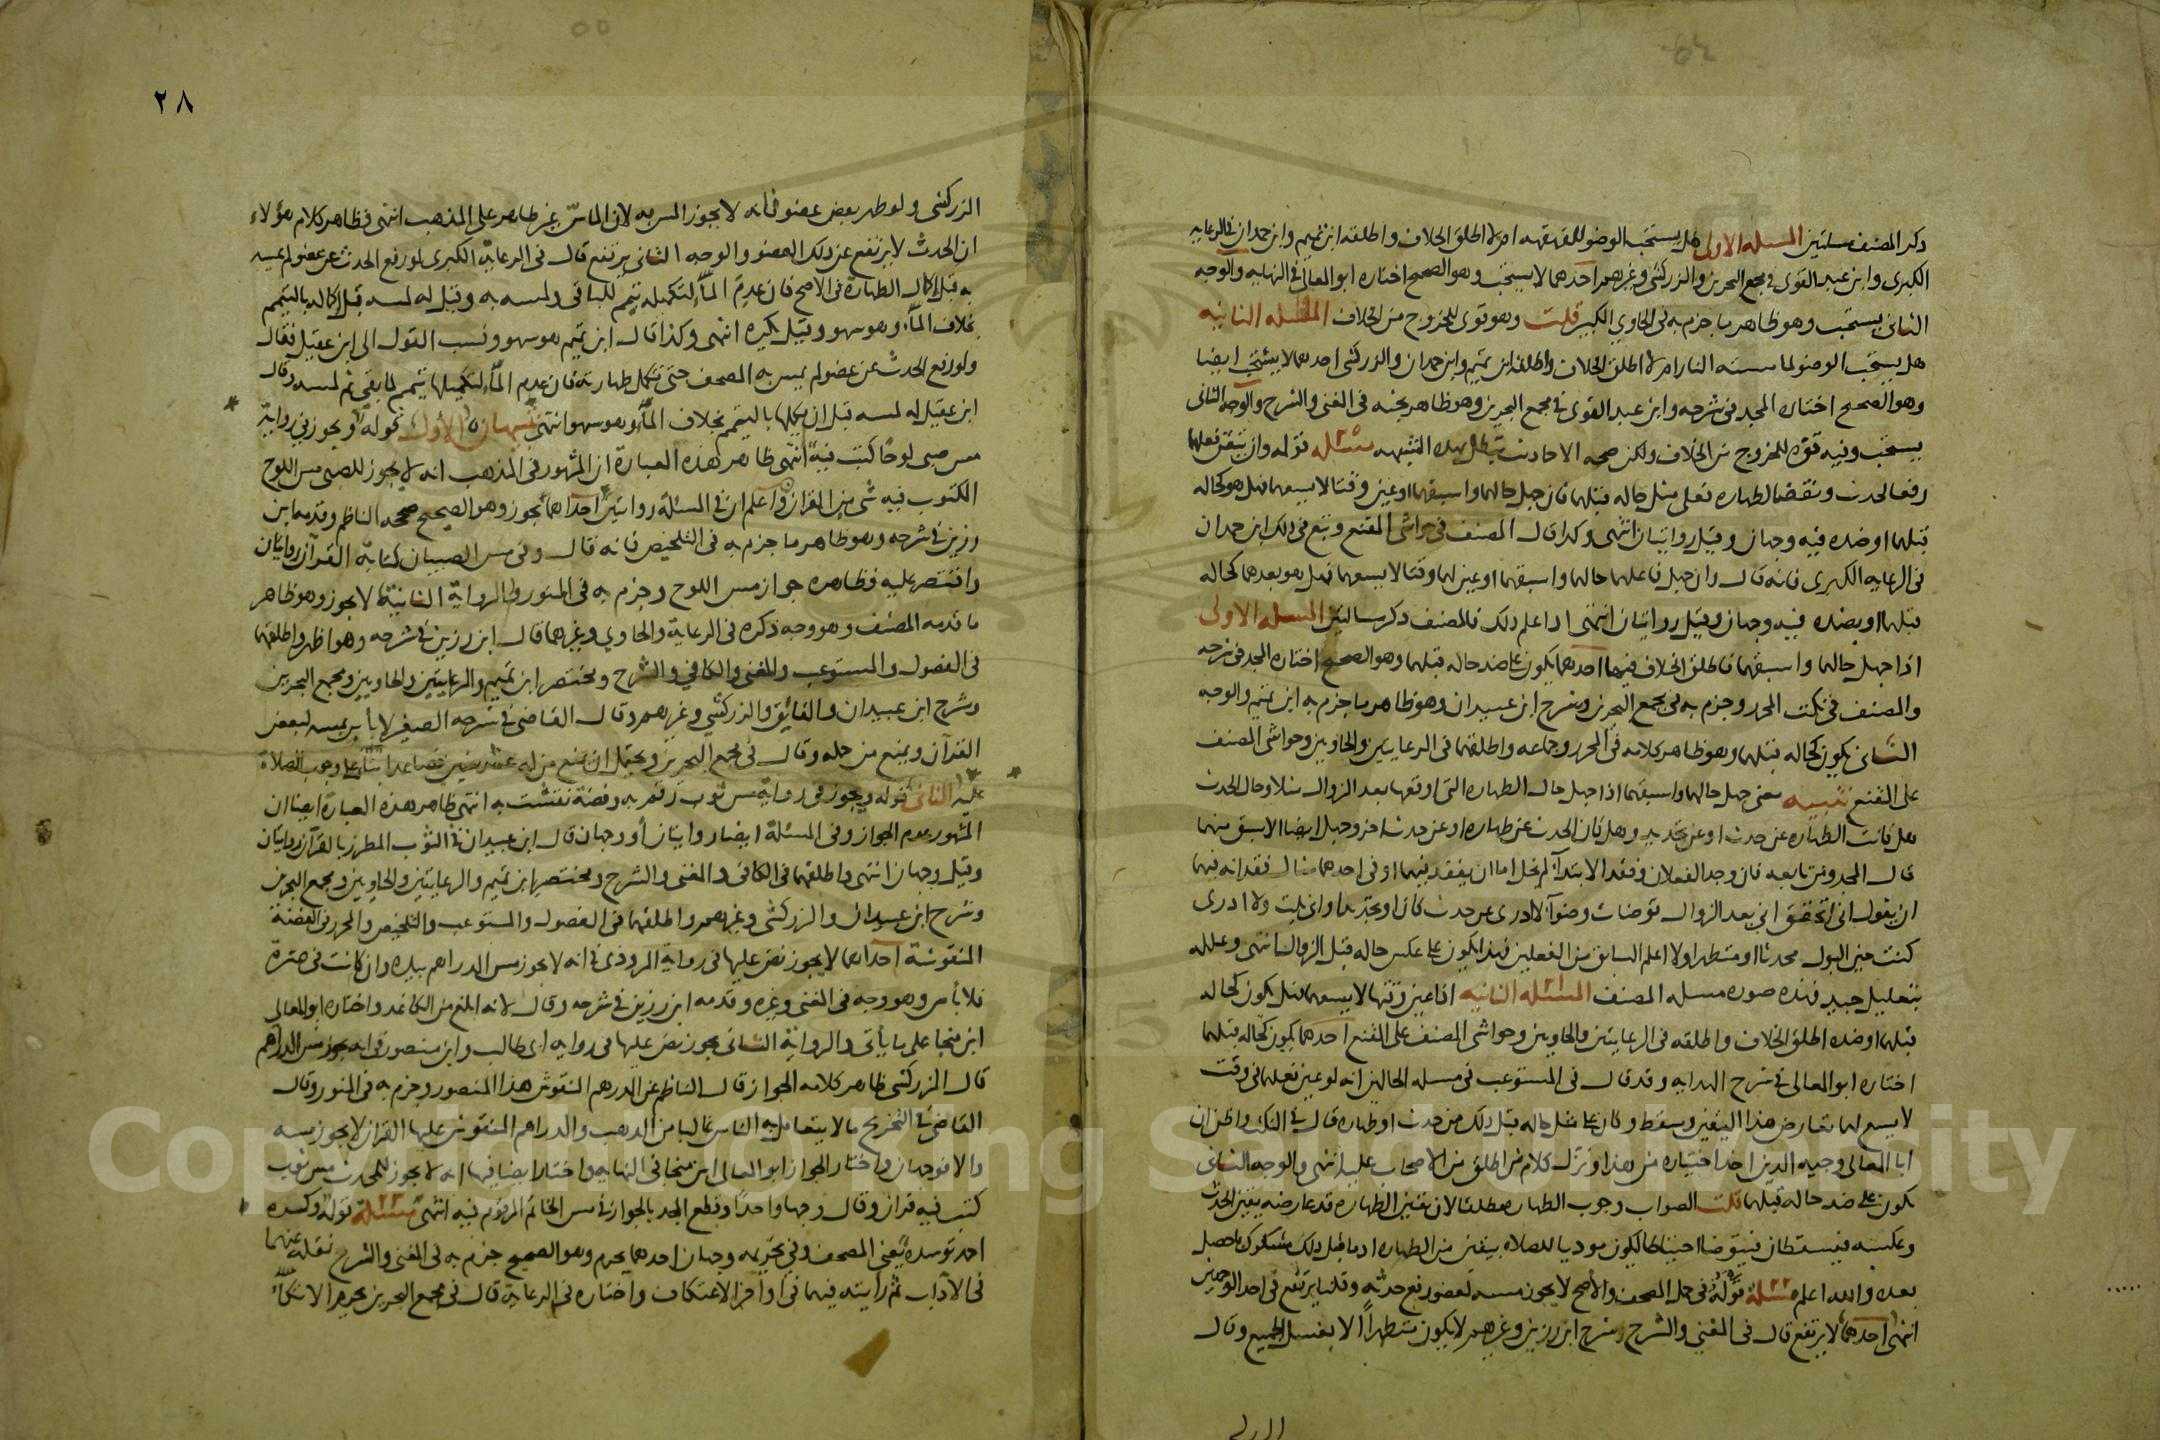 ذكر المصنف مسئلتين المسئلة الاولى هل يستحب الوضو للقهقهه ام لا اطلق الخلاف واطلقه ابن تميم وابن حمدان في الرعايه
الكبرى وابن عبد القوى في مجمع البحرين والزركشي وغيرهم احدهما لا يستحب وهو الصحيح اختاره ابو المعالي في النهايه والوجه
الثاني يستحب وهو ظاهر ما جزم به في الحاوي الكبير قلت وهو قوى للخروج من الخلاف المسئله الثانيه
هل يستحب الوضو لما مسته النار ام لا اطلق الخلاف واطلقه ابن تميم وابن حمدان والزركشي احدهما لا يستحب ايضا
وهو الصحيح اختاره المجد في شرحه وابن عبد القوى في مجمع البحرين وهو ظاهر بحثه في المغني والشرح والوجه الثاني
يستحب وفيه قوة للخروج من الخلاف ولكن صحه الاحاديث تبطل هذه الشبهه مسئله قوله وان تيقن فعلهما
رفعا لحدث ونقضا لطهاره فعلى مثل حاله قبلهما فان جهل حالهما واسبقهما او عين وقتا لا يسعهما فهل هو كحاله
قبلهما او ضده فيه وجهان وقيل روايتان انتهى وكذا قال المصنف في حواشي المقنع وتبع في ذلك ابن حمدان
في الرعايه الكبرى فانه قال وان جهل فاعلهما حالهما واسبقهما او عين لهما وقتا لا يسعهما فهل هو بعدهما كحاله
قبلهما او بضده فيه وجهان وقيل روايتان انتهى اذا علم ذلك فالمصنف ذكر مسالتين المسئله الاولى
اذا جهل حالهما واسبقهما فاطلق الخلاف فيها احدهما يكون على ضد حاله قبلهما وهو الصحيح اختاره المجد في شرحه
والمصنف في نكت المحرر وجزم به في مجمع البحرين وشرح ابن عبيدان وهو ظاهر ما جزم به ابن تميم والوجه
الثاني يكون كحاله قبلهما وهو ظاهر كلامه في المحرر وجماعه واطلقهما في الرعايتين والحاويين وحواشي المصنف
على المقنع تنبيه معنى جهل حالهما واسبقهما اذا جهل حال الطهارة التي اوقعها بعد الزوال مثلا وحال الحدث
هل كانت الطهاره عن حدث او عن تجديد وهل كان الحدث عن طهاره او عن حدث اخر وجهل ايضا الاسبق منهما
قال المجد ومن تابعه فان وجد الفعلان وفقد الابتداء لم يخل اما ان يفقد فيهما او في احدهما مثال فقدانه فيهما
ان يقول اني اتحقق اني بعد الزوال توضات وضوءا لا ادرى عن حدث كان او تجديدا واني بلت ولا ادرى
كنت حين البول محدثا او متطهرا ولا اعلم السابق من الفعلين فهذا يكون على عكس حاله قبل الزوال انتهى وعلله
بتعليل جيد فهذه صورة مسله المصنف المسئله الثانيه اذا عين وقتا لا يسعهما فهل يكون كحاله
قبلهما او ضده اطلق الخلاف واطلقه في الرعايتين والحاويين وحواشي المصنف على المقنع احدهما يكون كحاله قبلهما
اختاره ابو المعالي في شرح الهدايه وقد قال في المستوعب في مسله الحالين انه لو عين فعلهما في وقت
لا يسع لهما تعارض هذا اليقين وسقط وكان على مثل حاله قبل ذلك من حدث او طهاره قال في النكت واظن ان
ابا المعالي وجيه الدين اخذ اختياره من هذا ونزل كلام من اطلق من الاصحاب عليه انتهى والوجه الثاني
يكون على ضد حاله قبلهما قلت الصواب وجوب الطهاره مطلقا لان تيقن الطهاره قد عارضه تيقن الحدث
وعكسه فيسقطان فيتوضا احتياطا ليكون موديا للصلاه بيقين من الطهاره اذ ما قبل ذلك مشكوك ما حصل
بعده والله اعلم مسئلة ٢٢ قوله في حمل المصحف والأصح لا يجوز مسه لعضو رفع حدثه وقلنا يرتفع في احد الوجهين
انتهى احدهما لا يرتفع قال في المغني والشرح وشرح ابن رزين وغيرهم لا يكون متطهرا الا بغسل الجميع وقال
٢٨
الزركشي ولو طهر بعض عضو فانه لا يجوز المس به لان الماسّ غير طاهر على المذهب انتهى فظاهر كلام هؤلاء
ان الحدث لا يرتفع عن ذلك العضو والوجه الثاني يرتفع قال في الرعاية الكبرى لو رفع الحدث عن عضو لم يمسه
به قبل اكمال الطهارة في الاصح فان عدم الماء لتكميله تيمم للباقي ولمسه به وقيل له لمسه قبل اكماله بالتيمم
بخلاف الماء وهو سهو وقيل يكره انتهى وكذا قال ابن تميم هو سهو ونسب القول الى ابن عقيل فقال
ولو رفع الحدث عن عضو لم يمس به المصحف حتى تكمل طهارته فان عدم الماء لتكميلها تيمم لما بقي ثم لمسه وقال
ابن عقيل له لمسه قبل ان يكملها بالتيمم بخلاف الماء وهو سهو انتهى تنبيهان الأول قوله ويجوز في رواية
مس صبي لوحًا كتب فيه انتهى ظاهر هذه العبارة ان المشهور في المذهب انه لا يجوز للصبي مس اللوح
المكتوب فيه شي من القرآن واعلم ان في المسئلة روايتين احداهما يجوز وهو الصحيح صححه الناظم وقدمه ابن
رزين في شرحه وهو ظاهر ما جزم به في التلخيص فانه قال وفي مس الصبيان كتابة القرآن روايتان
واقتصر عليه فظاهره جواز مس اللوح وجزم به في المنور والرواية الثانية لا يجوز وهو ظاهر
ما قدمه المصنف وهو وجه ذكره في الرعاية والحاوي وغيرهما قال ابن رزين في شرحه وهو اظهر واطلقهما
في الفصول والمستوعب والمغني والكافي والشرح ومختصر ابن تميم والرعايتين والحاويين ومجمع البحرين
وشرح ابن عبيدان والفائق والزركشي وغيرهم وقال القاضي في شرحه الصغير لا بأس بمسه لبعض
القرآن ويمنع من حمله وقال في مجمع البحرين ويحتمل ان يمنع من له عشر سنين فصاعدا بناء على وجوب الصلاة
عليه الثاني قوله ويجوز في رواية مس ثوب رقم به وفضة نقشت به انتهى ظاهر هذه العبارة ايضا ان
المشهور عدم الجواز وفي المسئلة ايضا روايتان أو وجهان قال ابن عبيدان في الثوب المطرز بالقرآن روايتان
وقيل وجهان انتهى واطلقهما في الكافي والمغني والشرح ومختصر ابن تميم والرعايتين والحاويين ومجمع البحرين
وشرح ابن عبيدان والزركشي وغيرهم واطلقهما في الفصول والمستوعب والتلخيص والمحرر في الفضة
المنقوشة احداهما لا يجوز نص عليها في رواية المروذي في انه لا يجوز مس الدراهم بيده وان كانت في صرة
فلا بأس وهو وجه في المغني وغيره وقدمه ابن رزين في شرحه وقال لانه ابلغ من الكاغد واختاره ابو المعالي
ابن منجا على ما يأتي والرواية الثاني يجوز نص عليها في رواية ابي طالب وابن منصور في انه يجوز مس الدراهم
قال الزركشي ظاهر كلامه الجواز قال الناظم عن الدرهم المنقوش هذا المنصور وجزم به في المنور وقال
القاضي في التخريج مالا يتعامل به الناس غالبا من الذهب والدراهم المنقوش عليها القرآن لا يجوز مسه
والا فوجهان واختار الجواز ابو المعالي ابن منجا في النهاية واختار ايضا فيها انه لا يجوز للمحدث مس ثوب
كتب فيه قرآن وقال وجها واحدًا وقطع المجد بالجواز في مس الخاتم المرقوم فيه انتهى مسئلة ٢٣ قوله وكذه
احد توسده يعني المصحف وفي تحريمه وجهان احدهما يحرم وهو الصحيح جزم به في المغني والشرح نقله عنهما
في الآداب ثم رأيته فيهما في اواخر الاعتكاف واختاره في الرعاية قال في مجمع البحرين يحرم الاتكاء